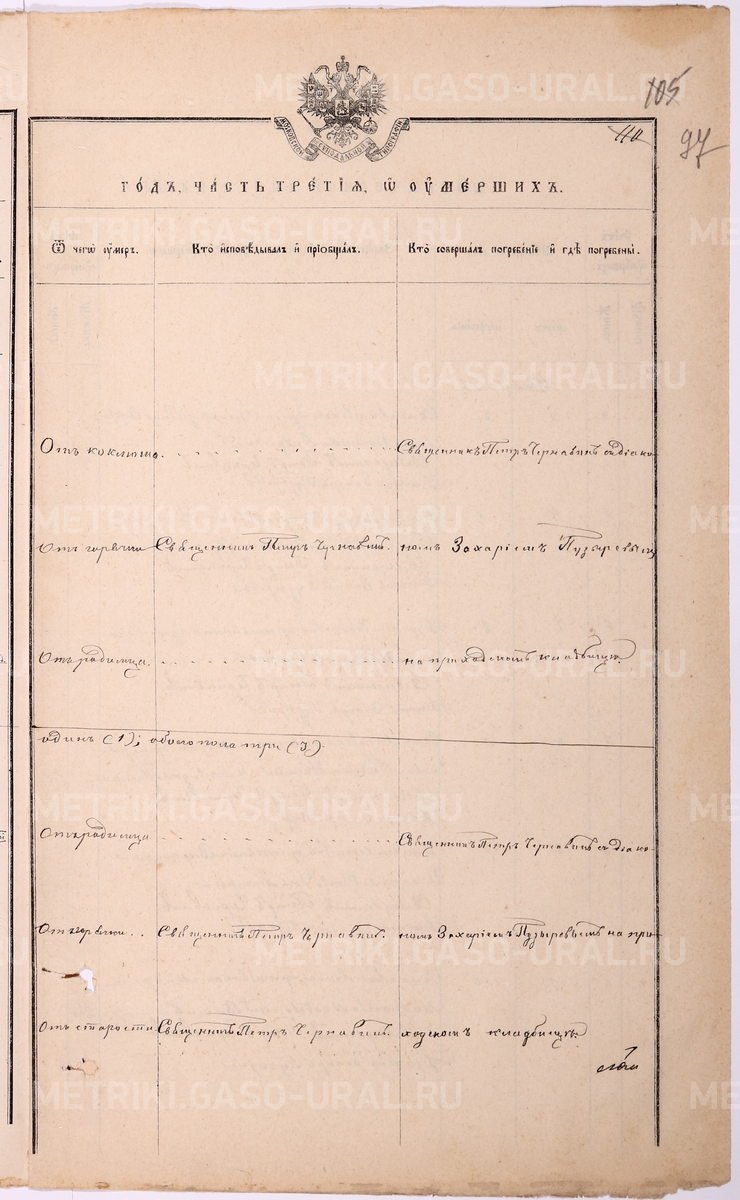 105
110
97
МОСКОВСКОЙ СѴНОДАЛЬНОЙ ТИПОГРАФІИ
ГО́ДЪ, ЧА́СТЬ ТРЕ́ТІЯ, Ѿ ОУМЕ́РШИХЪ.
Ѿ чегѡ̀ оу́меръ. Кто̀ и҆сповѣ́дывалъ и҆ прїѡбща́лъ. Кто̀ соверша́лъ погребе́нїе и҆ гдѣ̀ погребены̀.
Отъ коклюша. Священникъ Петръ Чернавинъ съ діако-
Отъ горячки Священникъ Петръ Чернавинъ. номъ Захаріемъ Пузыревымъ
Отъ родимца. на приходскомъ кладбищѣ.
одинъ (1); обоего пола три (3).
Отъ родимца Священникъ Петръ Чернавинъ съ діако-
От горячки.. Священникъ Петръ Чернавинъ. номъ Захаріемъ Пузыревымъ на при-
Отъ старости Священникъ Петръ Чернавинъ. ходскомъ кладбищѣ.
METRIKI.GASO-URAL.RU